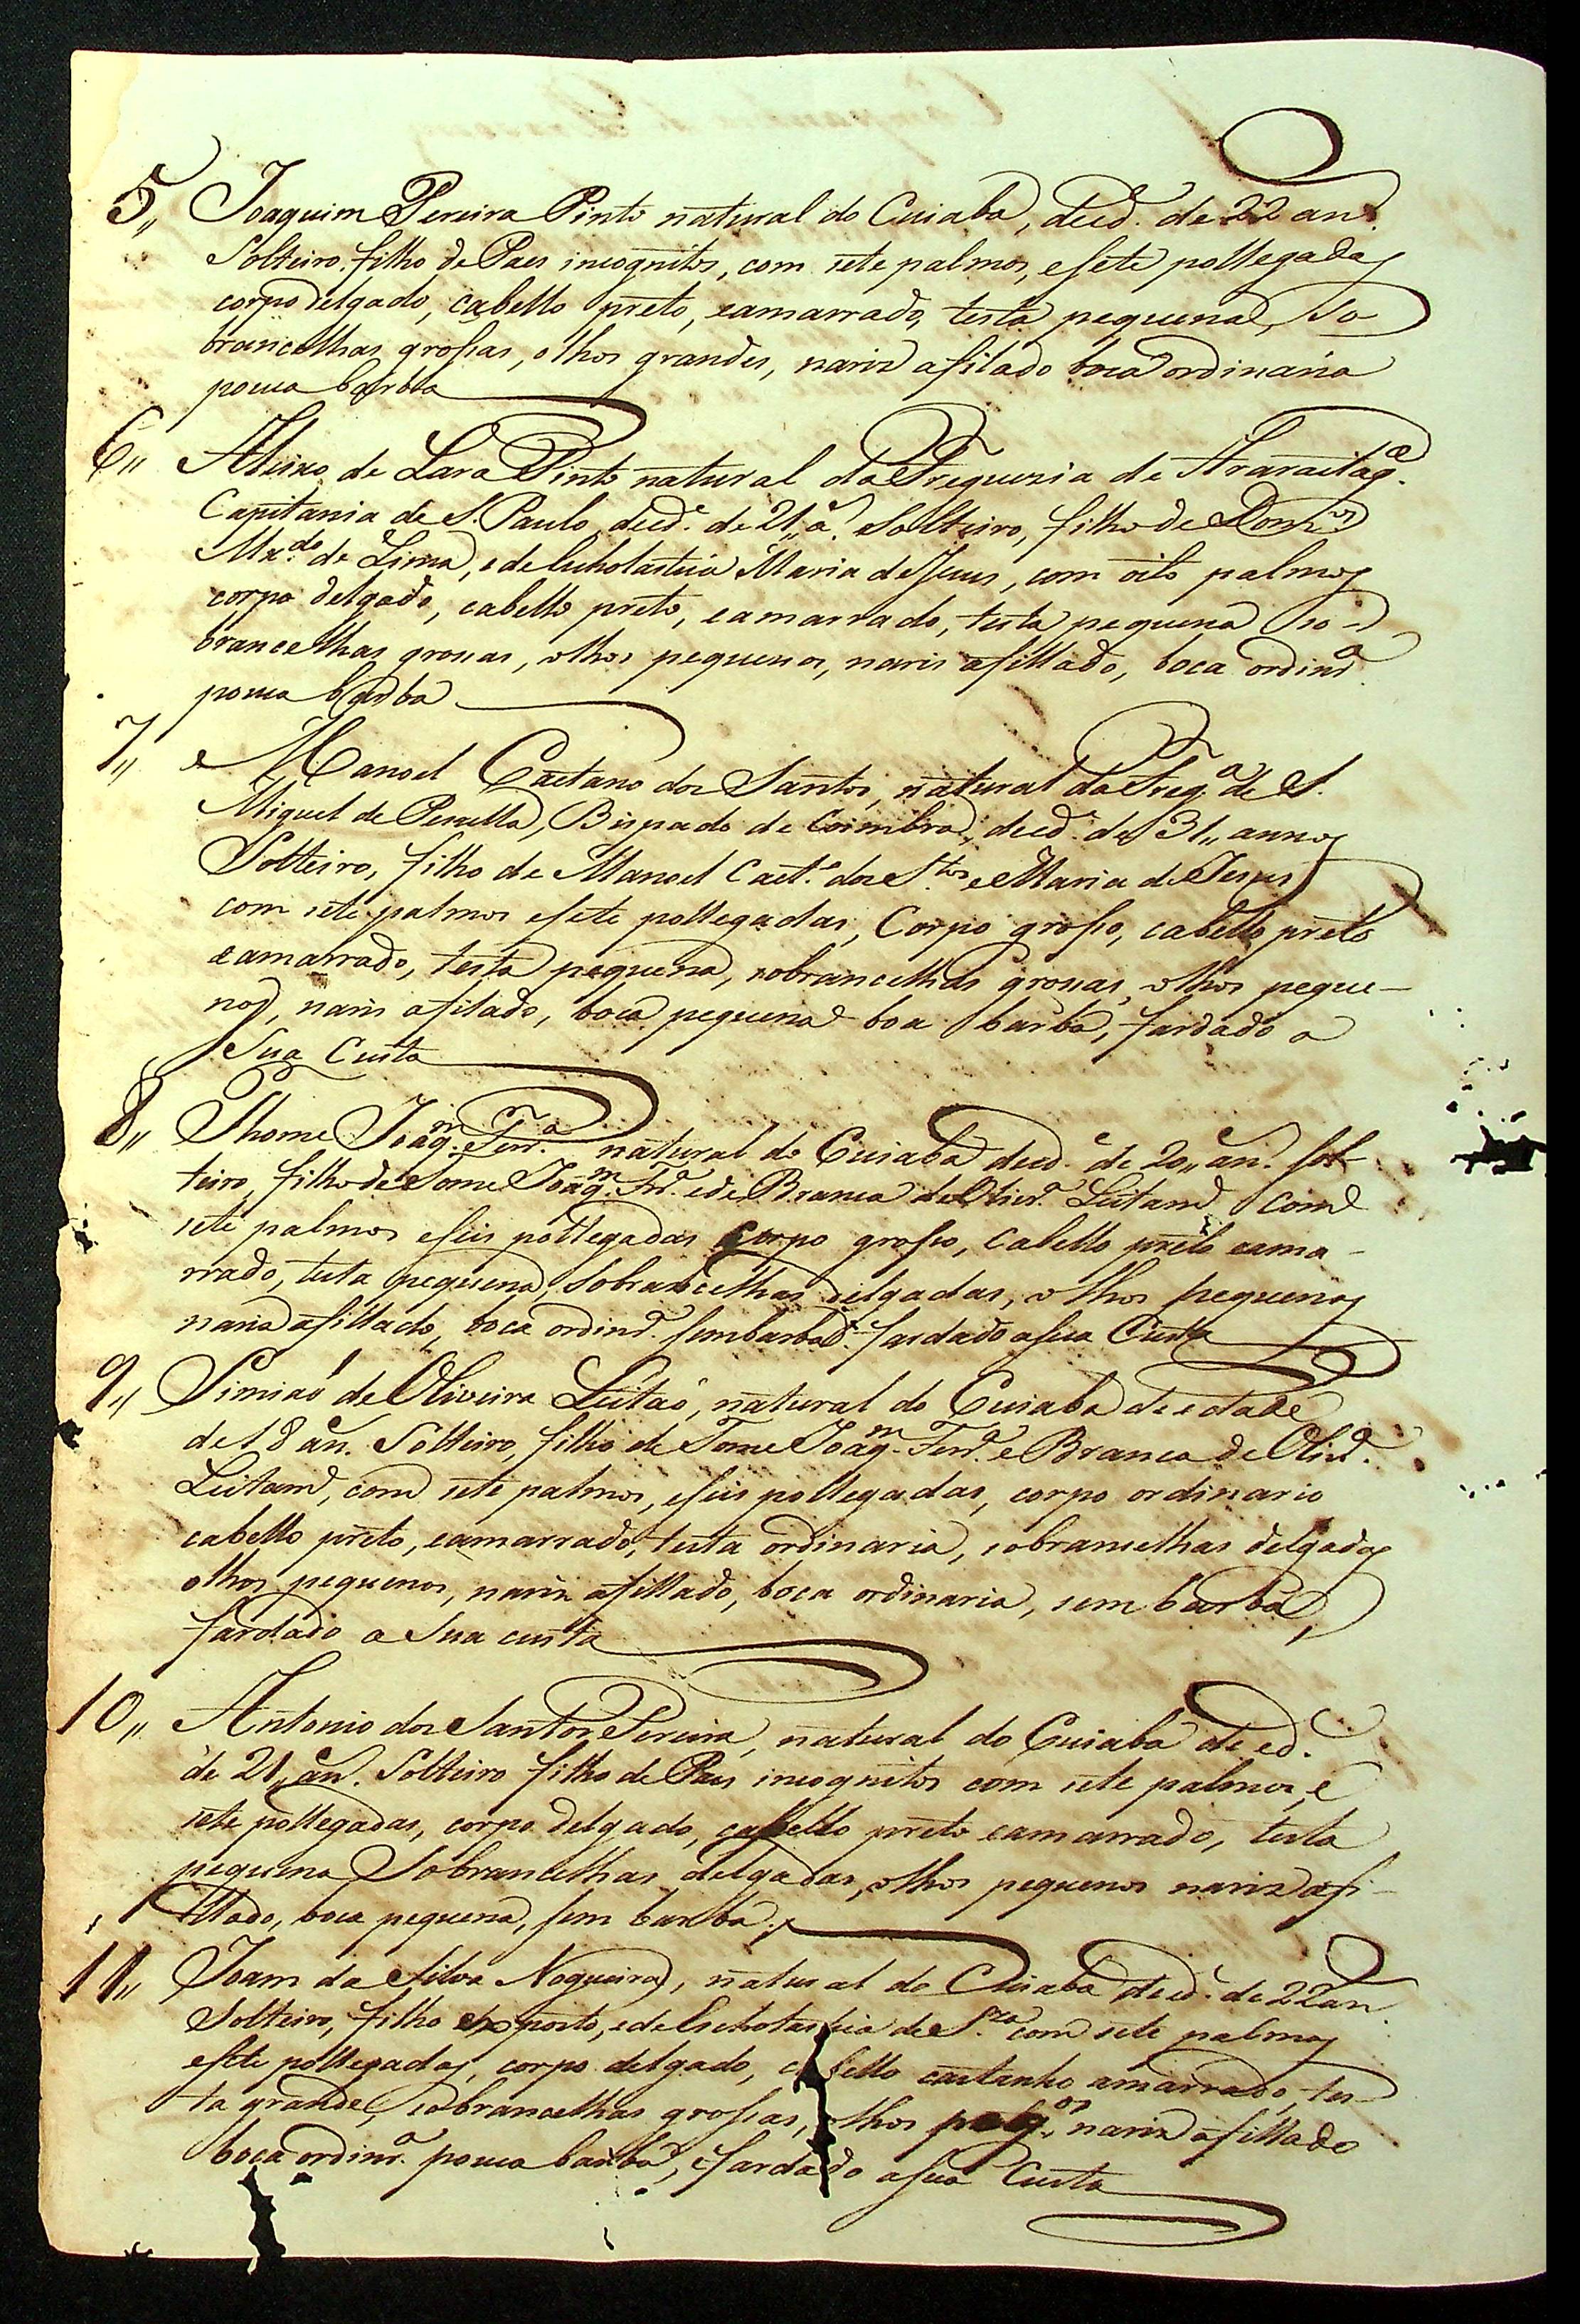 5,, Joaquim Pereira Pinto natural do Cuiaba, deed.e de 22 an.s
Solteiro, filho de Paes incognitos, com sete palmos, esete pollegadas
corpo delgado, cabello preto, eamarrado, testa pequena, so
brancelhas grossas, olhos grandes, nariz afilado boca ordinaria
pouca barba
6,, Aleixo de Lara Pinto natural da Freguezia de Araraitag.a
Capitania de S. Paulo, deed.e de 21,, a. Solteiro, filho de Dom.os
Mx.do de Lima, e de Escholastica Maria de Jesus, com oito palmos
corpo delgado, cabello preto, eamarrado, testa pequena so-
brancelhas grossas, olhos pequenos, naris afillado, boca ordin.a
pouca barba
7,, Manoel Caetano dos Santos, natural da Freg.a de S.
Miguel de Penella, Bispado de Coimbra, deed.e de 31,, annos
Solteiro, filho de Manoel Caet.o dos S.tos e Maria de Jesus
com sete palmos esete pollegadas, Corpo grosso, cabello preto
eamarrado, testa pequena, sobrancelhas grossas, olhos peque-
nos, naris afilado, boca pequena boa barba, fardado a
Sua Custa
8,, Thome Joaq.m Ferr.a natural do Cuiaba deed.e de 20,, an. Sol-
teiro, filho de Tome Joaq.m Frr.a ede Branca de Olivr.a Leitam com
sete palmos eseis pollegadas Corpo grosso, Cabello preto eama-
rrado, testa pequena, Sobrancelhas delgadas, olhos pequenos
nariz afillado, boca ordinr.a sem barba. fardado asua Custa
9,, Simiaõ de Oliveira Leitaõ, natural do Cuiaba de edade
de 18 an. Solteiro, filho de Tome Joaq.m Ferr.a e Branca de Olivr.a
Leitam, com sete palmos, eseis pollegadas, corpo ordinario
cabello preto, eamarrado, testa ordinaria, sobrancelhas delgadas
olhos pequenos, nariz afillado, boca ordinaria, sem barba,
fardado a Sua custa
10,, Antonio dos Santos Pereira, natural do Cuiaba de ed.e
de 21,, an. Solteiro filho de Paes incognitos com sete palmos, e
sete pollegadas, corpo delgado, cabello preto eamarrado, testa
pequena Sobrancelhas delgadas, olhos pequenos nariz afi-
llado, boca pequena, sem barba.
11,, Joam da Silva Nogueira, natural do Cuiaba deed.e de 22 an
Solteiro, filho exposto, ede Escholastica de S.za com sete palmos
esete pollegadas, corpo delgado, cabello castanho amarrado, tes-
ta grande, sobrancelhas grossas, olhos peq.os, nariz afillado
boca ordinr.a pouca barba, efardado asua Custa